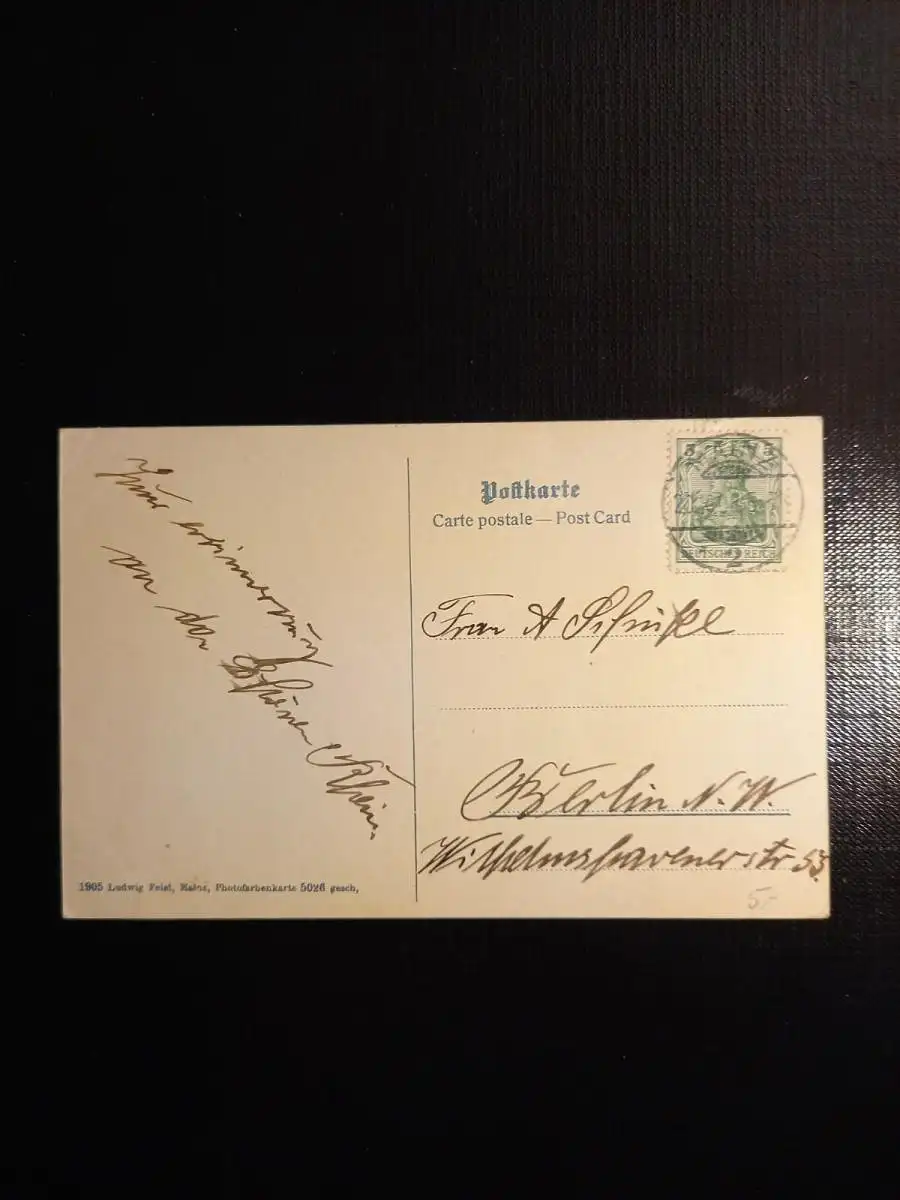 Zur erinnerung
an den
Schönen Rhein
Postkarte
Carte postale — Post Card
5 5
DEUTSCHES REICH
2
Frau A
Berlin N.W.
Wilhelmshavenerstr 53
1905 Ludwig Feist, Mainz, Photofarbenkarte 5026 gesch,
5.-